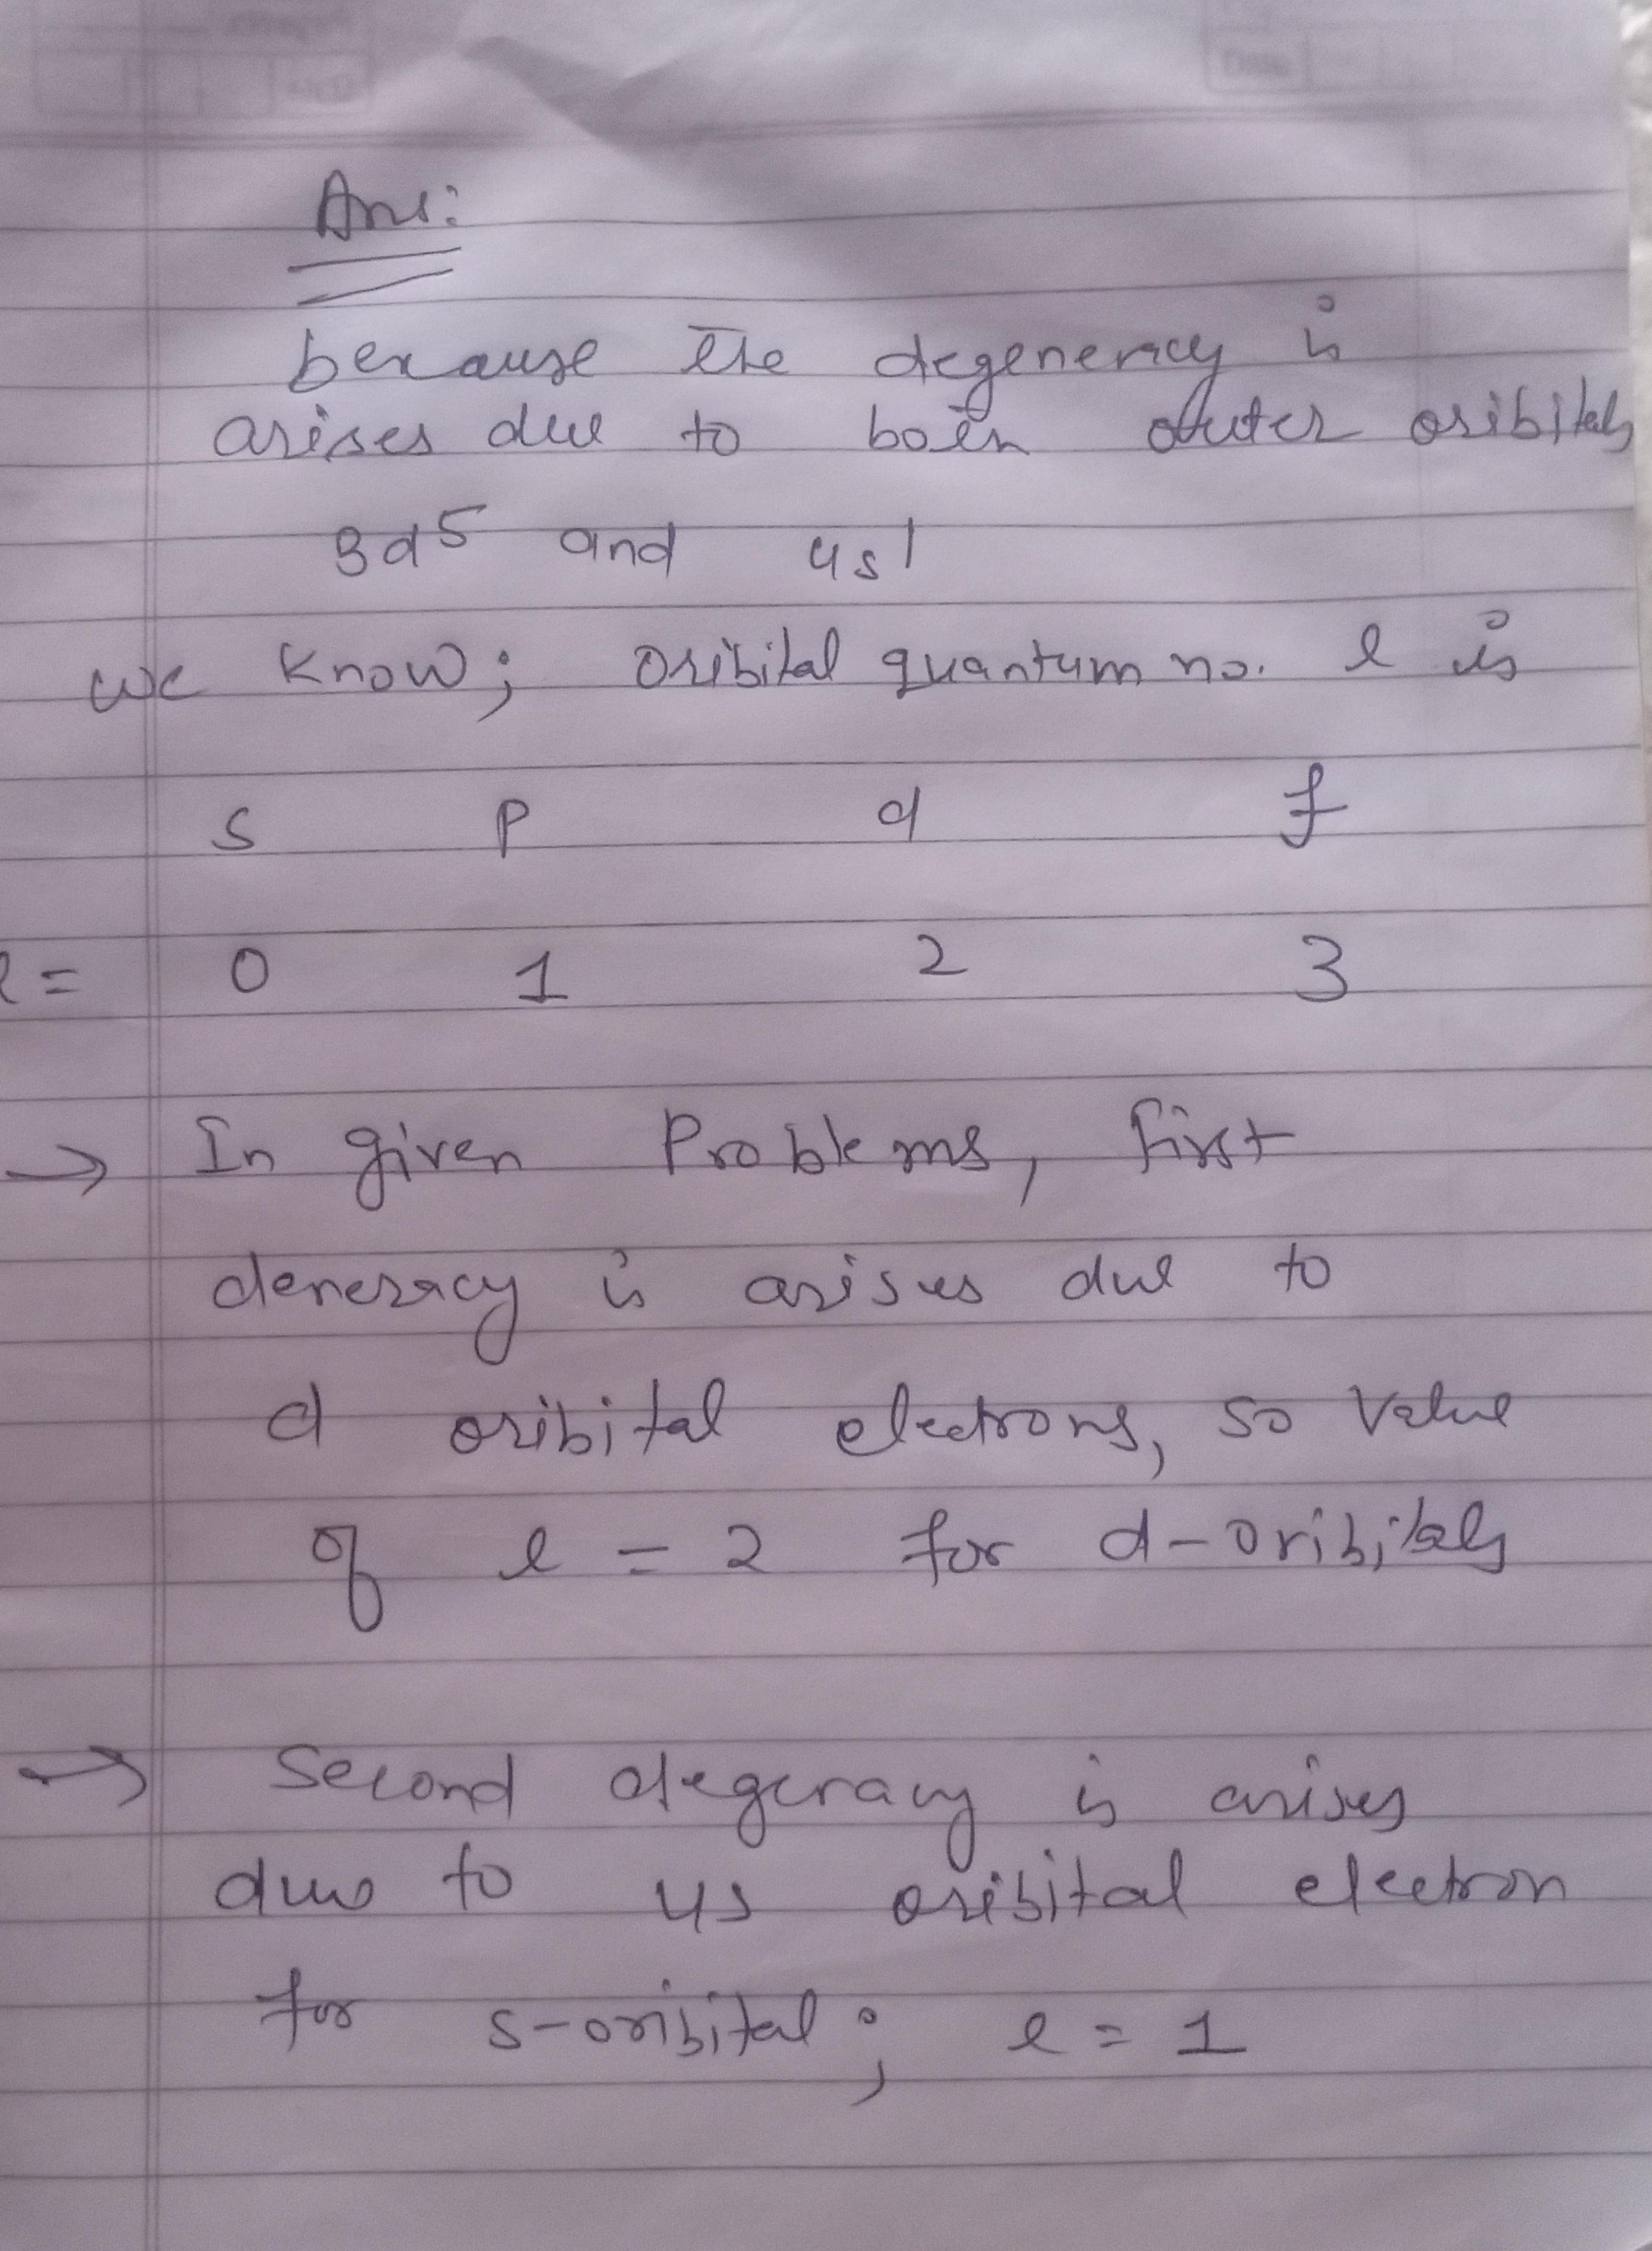 Ans:
because the degeneracy is
arises due to both outer oribitals
3d5 and 4s1
we know; oribital quantum no. l is
s p d f
l = 0 1 2 3
→ In given Problems, first
deneracy is arises due to
d oribital electrons, so value
of l = 2 for d-oribitals
→ Second degeracy is arises
due to 4s oribital electron
for s-oribital; l = 1